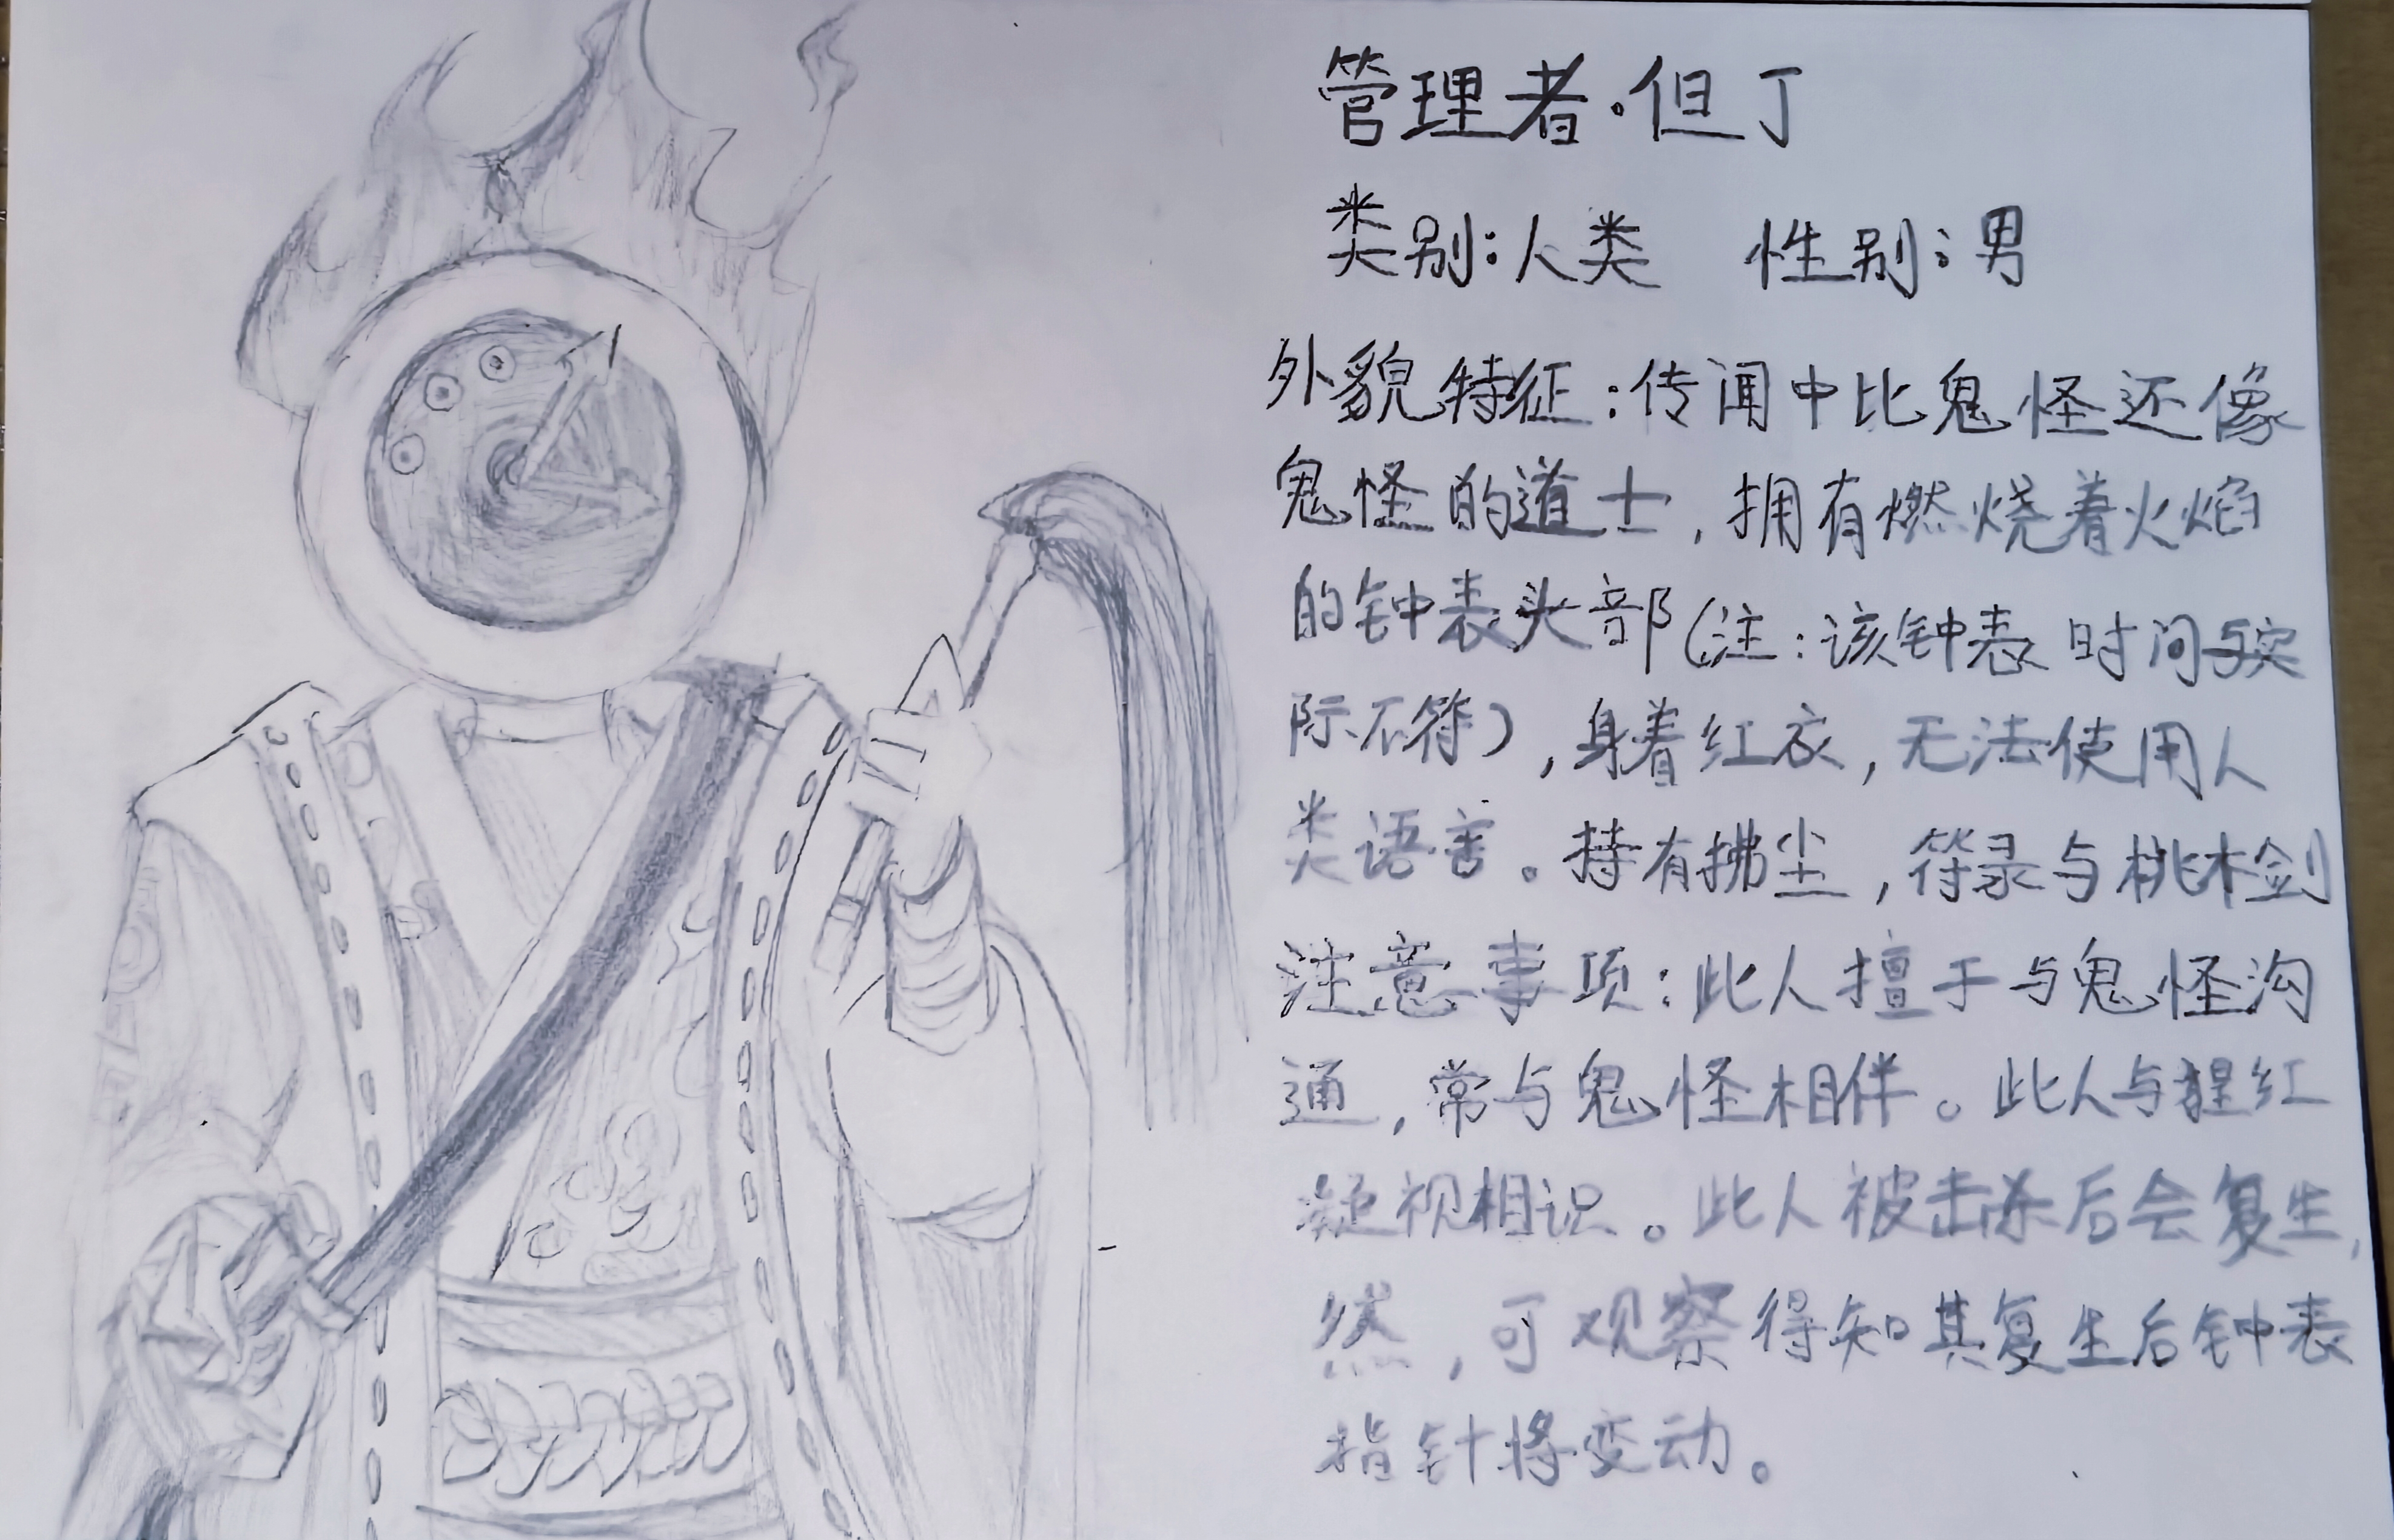 管理者·但丁
类别:人类 性别:男
外貌特征:传闻中比鬼怪还像
鬼怪的道士,拥有燃烧着火焰
的钟表头部(注:该钟表时间与实
际不符),身着红衣,无法使用人
类语言。持有拂尘,符录与桃木剑
注意事项:此人擅于与鬼怪沟
通,常与鬼怪相伴。此人与猩红
凝视相识。此人被击杀后会复生,
然,可观察得知其复生后钟表
指针将变动。